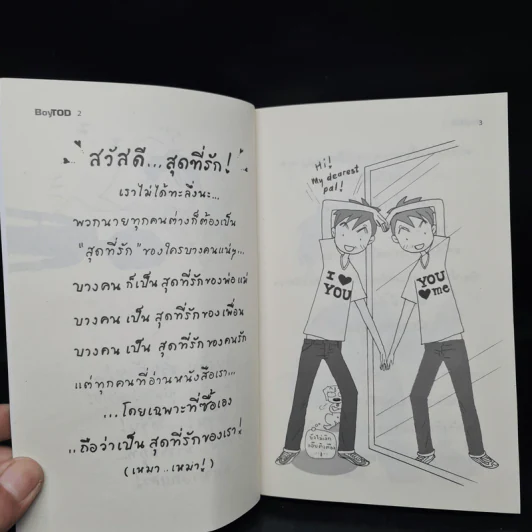 BoyTOD 2
สวัสดี... สุดที่รัก!
เราไม่ได้ทะลึ่งนะ...
พวกนายทุกคนต่างก็ต้องเป็น
"สุดที่รัก" ของใครบางคนแน่ๆ...
บางคน ก็เป็น สุดที่รักของพ่อแม่
บางคน เป็น สุดที่รักของเพื่อน
บางคน เป็น สุดที่รักของคนรัก
แต่ทุกคนที่อ่านหนังสือเรา...
...โดยเฉพาะที่ซื้อเอง
..ถือว่าเป็น สุดที่รักของเรา!
(เหมา..เหมา!)
3
Hi!
My dearest
pal!
I ♥
YOU
YOU
♥ me